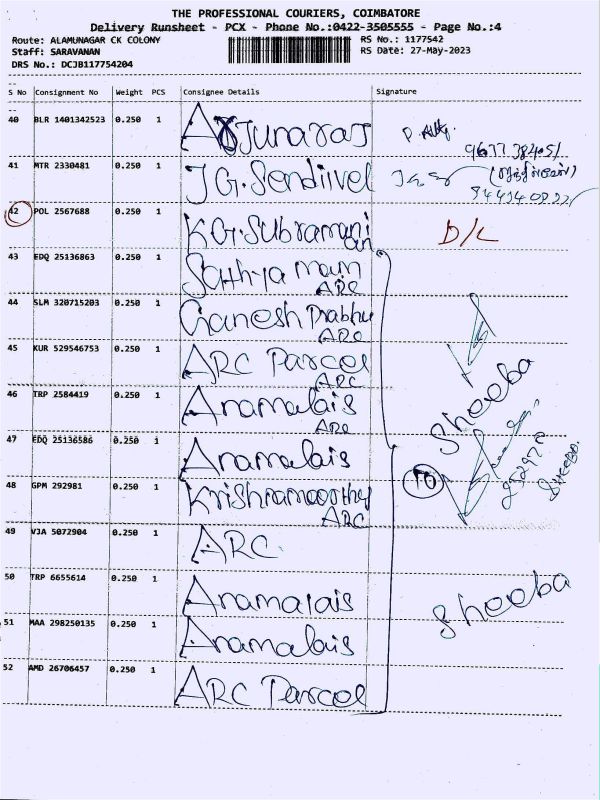 THE PROFESSIONAL COURIERS, COIMBATORE
Delivery Runsheet - PCX - Phone No.:0422-3505555 - Page No.:4
Route: ALAMUNAGAR CK COLONY RS No.: 1177542
Staff: SARAVANAN RS Date: 27-May-2023
DRS No.: DCJB117754204
S No Consignment No Weight PCS Consignee Details Signature
40 BLR 1401342523 0.250 1 Arjunaraj
41 MTR 2330481 0.250 1 J G. Sendiivel
42 POL 2567688 0.250 1 K G. Subramanian D/L
43 EDQ 25136863 0.250 1 Sathya main
ARC
44 SLM 320715203 0.250 1 Ganesh Prabhu
ARC
45 KUR 529546753 0.250 1 ARC Parcel
ARC
46 TRP 2584419 0.250 1 Anamalais Sheeba
ARC
47 EDQ 25136586 0.250 1 Anamalais
48 GPM 292981 0.250 1 Krishnamoorthy 10 Sheeba
ARC
49 VJA 5072904 0.250 1 ARC.
50 TRP 6655614 0.250 1 Anamalais Sheeba
51 MAA 298250135 0.250 1 Anamalais
52 AMD 26706457 0.250 1 ARC Parcel